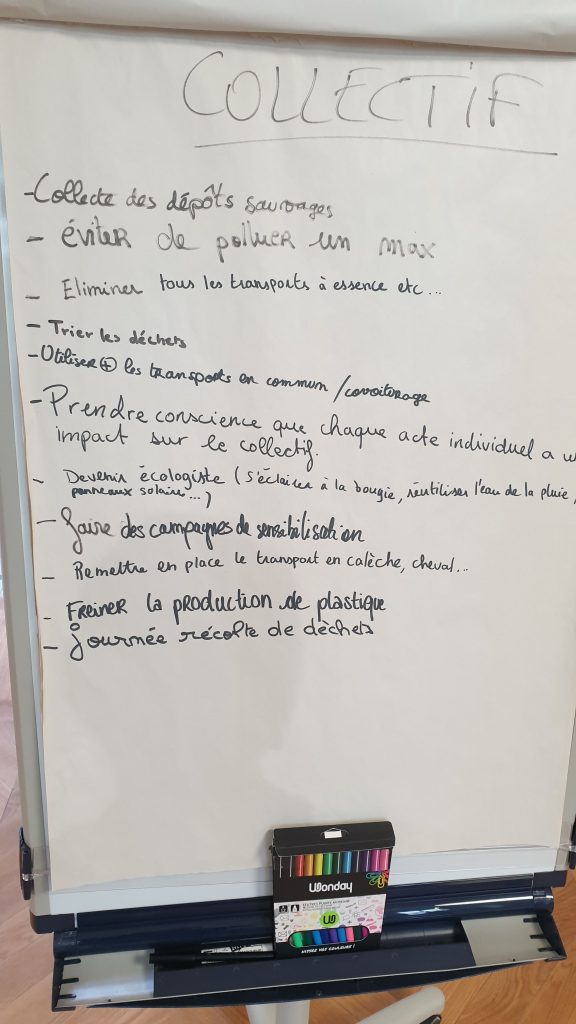 COLLECTIF
- Collecte des dépôts sauvages
- éviter de polluer un max
- Eliminer tous les transports à essence etc...
- Trier les déchets
- Utiliser (+) les transports en commun / covoiturage
- Prendre conscience que chaque acte individuel a u
impact sur le collectif.
- Devenir écologiste (s'éclairer à la bougie, réutiliser l'eau de la pluie,
panneaux solaire...)
- Faire des campagnes de sensibilisation
- Remettre en place le transport en calèche, cheval...
- Freiner la production de plastique
- journée récolte de dèchets
Wonday